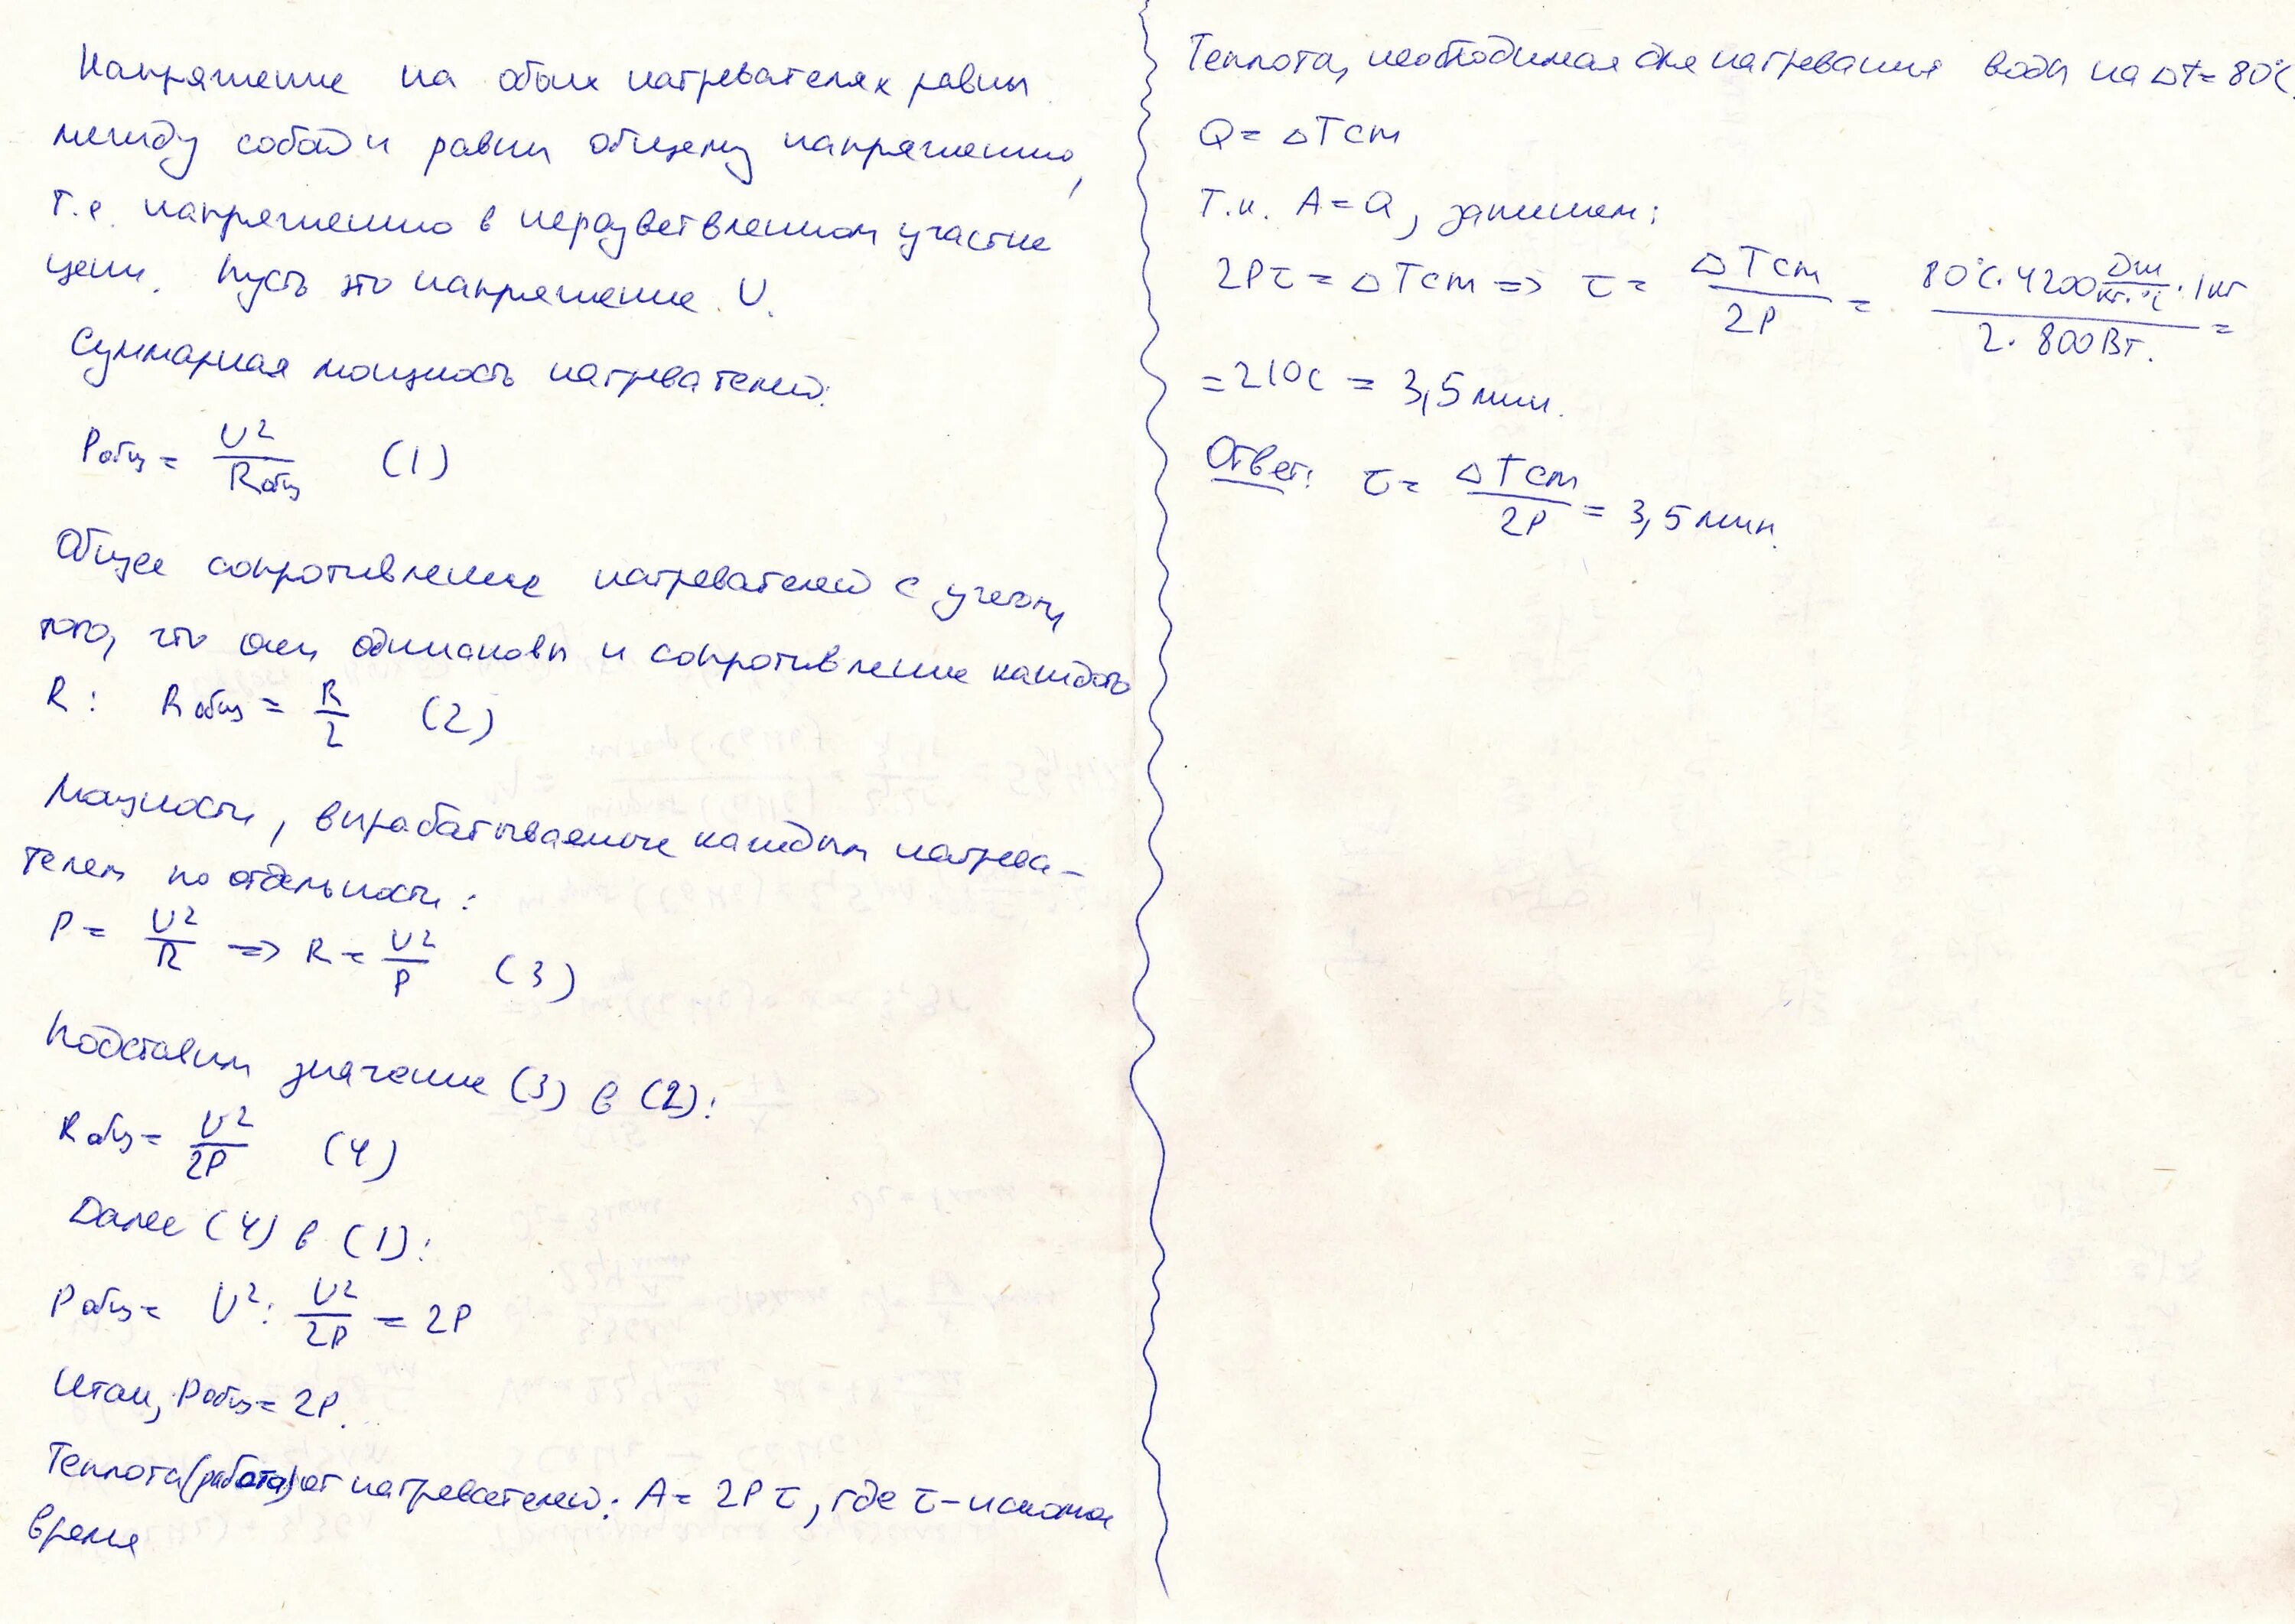 Напряжение на обоих нагревателях равны
между собой и равны общему напряжению,
т.е. напряжению в неразветвленном участке
цепи. Пусть это напряжение U.
Суммарная мощность нагревателей:
Pобщ = U²/Rобщ (1)
Общее сопротивление нагревателей с учетом
того, что они одинаковы и сопротивление каждого
R: Rобщ = R/2 (2)
Мощности, вырабатываемые каждым нагрева-
телем по отдельности:
P = U²/R => R = U²/P (3)
Подставим значение (3) в (2):
Rобщ = U²/2P (4)
Далее (4) в (1):
Pобщ = U² : U²/2P = 2P
Итак, Pобщ = 2P.
Теплота (работа) от нагревателей: A = 2Pτ, где τ - искомое
время
Теплота, необходимая для нагревания воды на Δt = 80°C,
Q = ΔTcm
Т.к. A = Q, запишем:
2Pτ = ΔTcm => τ = ΔTcm/2P = 80°C·4200 Дж/кг·°C ·1кг/2·800Вт. =
= 210с = 3,5 мин.
Ответ: τ = ΔTcm/2P = 3,5 мин.